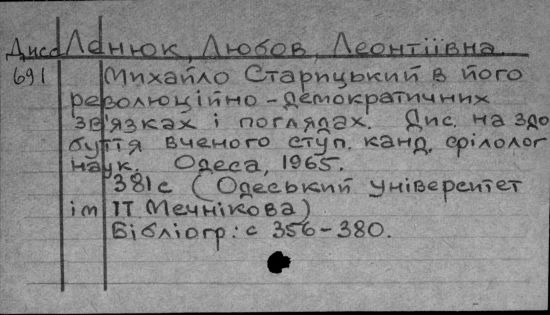 Дисс Ленюк, Любов, Леонтіївна.
691 Михайло Старицький в його
революційно-демократичних
зв'язках і поглядах. Дис. на здо
буття вченого ступ. канд. філолог
наук. Одеса, 1965.
381с (Одеський університет
ім ІІ Мечнікова)
Бібліогр: с 356-380.